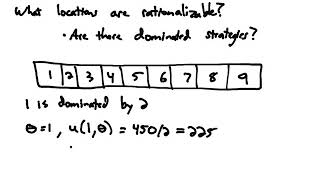 What locations are rationalizable?
• Are there dominated strategies?
1 2 3 4 5 6 7 8 9
1 is dominated by 2
θ=1, u(1,θ) = 450/2 = 225